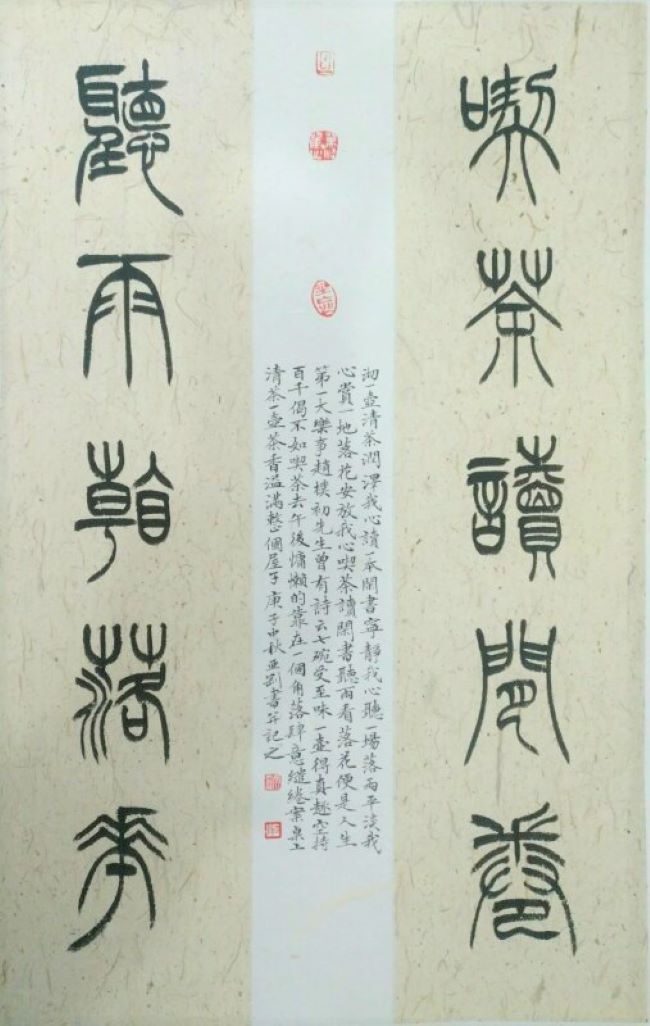 喫茶讀閒卷
沏一壺清茶潤澤我心讀一本閑書寧靜我心聽一場落雨平淡我
心賞一地落花安放我心喫茶讀閑書聽雨看落花便是人生
第一大樂事趙樸初先生曾有詩云七碗受至味一壺得真趣空持
百千偈不如喫茶去午後慵懶的靠在一個角落肆意繾綣案桌上
清茶一壺茶香溢滿整個屋子庚子中秋亞書並記之
聽雨看落華